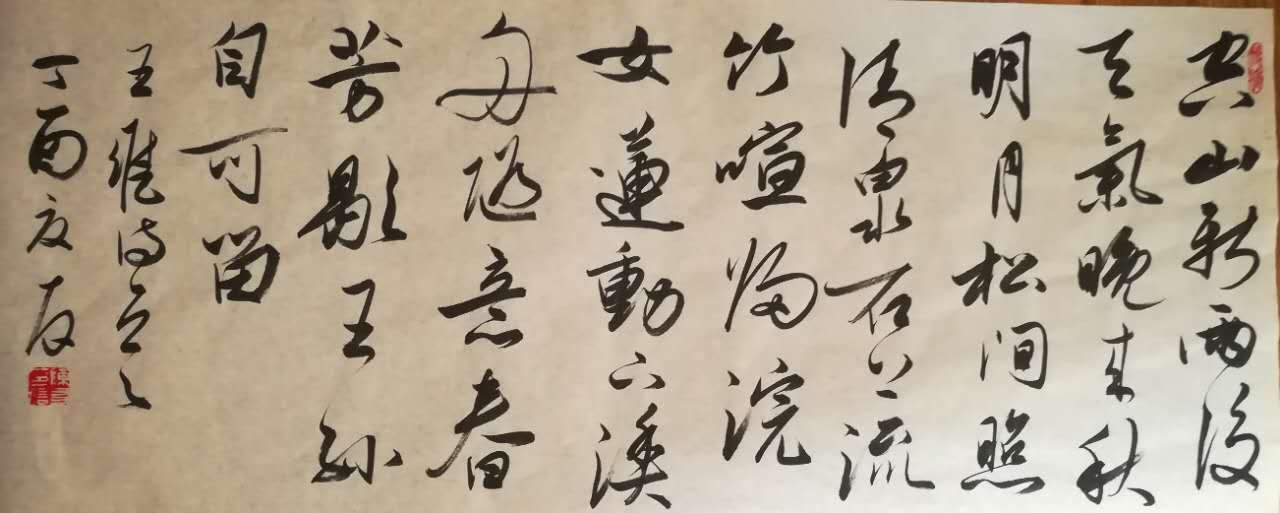 空山新雨後
天氣晚来秋
明月松间照
清泉石上流
竹喧歸浣
女蓮動下漁
舟随意春
芳歇王孙
自可留
王維诗
丁酉